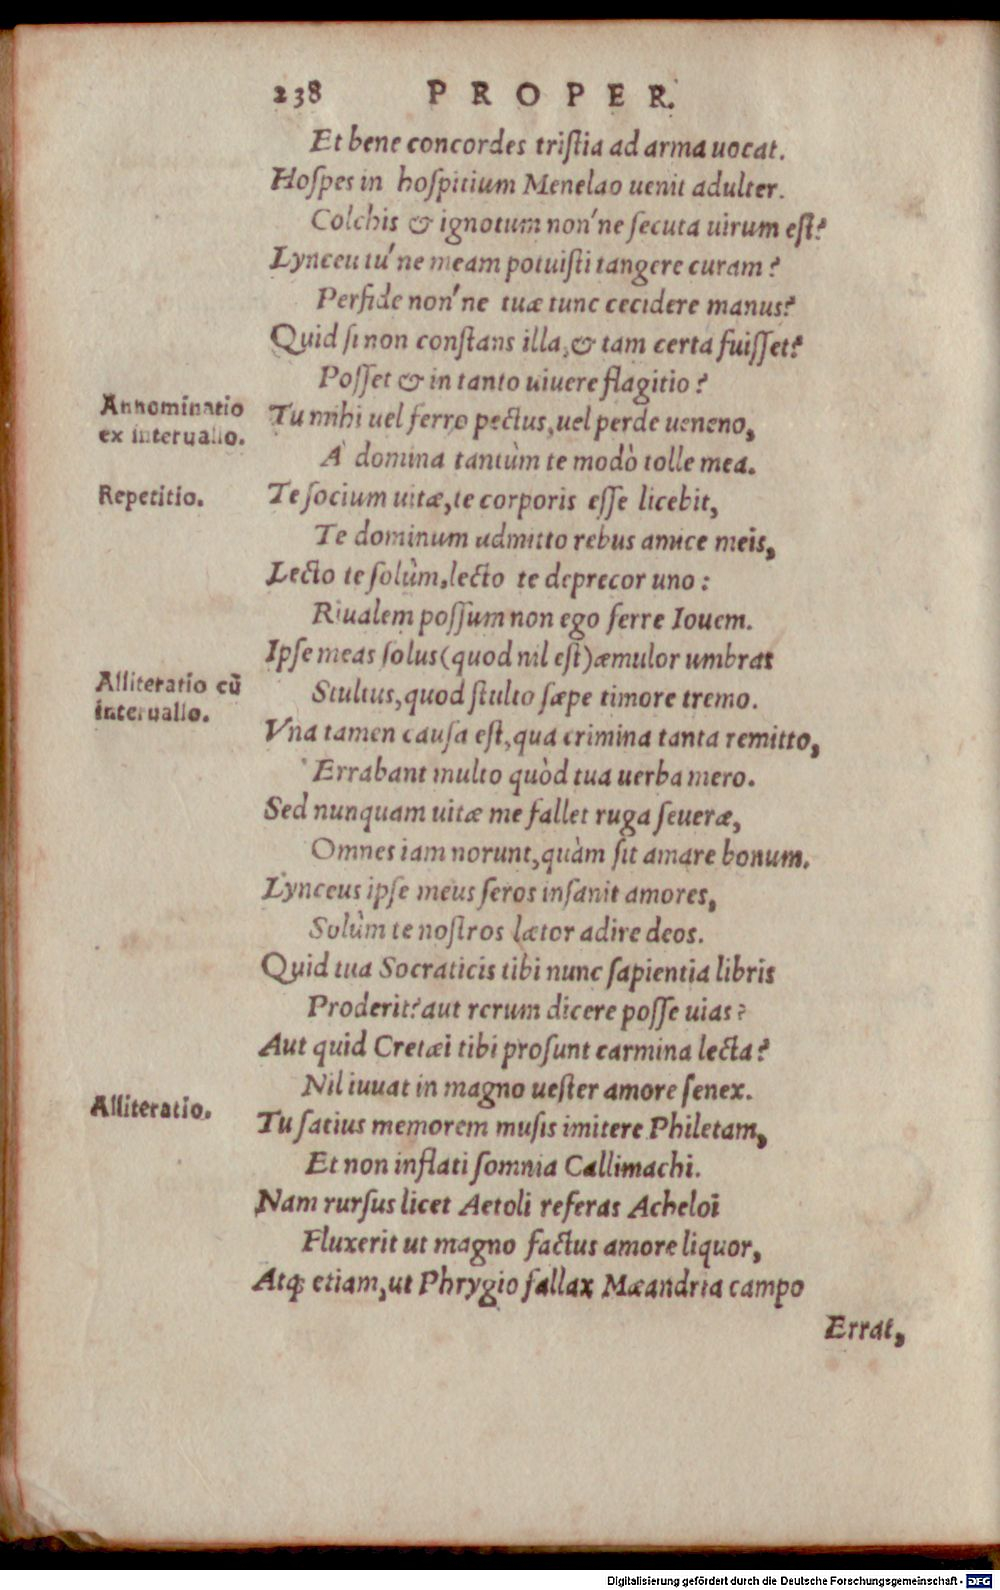 238 PROPER.
Et bene concordes tristia ad arma uocat.
Hospes in hospitium Menelao uenit adulter.
Colchis & ignotum non'ne secuta uirum est?
Lynceu tú ne meam potuisti tangere curam?
Perfide non'ne tuæ tunc cecidere manus?
Quid si non constans illa, & tam certa fuisset?
Posset & in tanto uiuere flagitio?
Annominatio
ex interuallo.
Tu mihi uel ferro pectus, uel perde ueneno,
À domina tantùm te modò tolle mea.
Repetitio.
Te socium uitæ, te corporis esse licebit,
Te dominum admitto rebus amice meis,
Lecto te solùm, lecto te deprecor uno:
Riualem possum non ego ferre Iouem.
Ipse meas solus (quod nil est) æmulor umbras
Alliteratio cū
interuallo.
Stultus, quod stulto sæpe timore tremo.
Vna tamen causa est, qua crimina tanta remitto,
Errabant multo quòd tua uerba mero.
Sed nunquam uitæ me fallet ruga seueræ,
Omnes iam norunt, quàm sit amare bonum.
Lynceus ipse meus seros insanit amores,
Solùm te nostros lætor adire deos.
Quid tua Socraticis tibi nunc sapientia libris
Proderit? aut rerum dicere posse uias?
Aut quid Cretæi tibi prosunt carmina lecta?
Nil iuuat in magno uester amore senex.
Alliteratio.
Tu satius memorem musis imitere Philetam,
Et non inflati somnia Callimachi.
Nam rursus licet Aetoli referas Acheloi
Fluxerit ut magno factus amore liquor,
Atq; etiam, ut Phrygio fallax Mæandria campo
Errat,
Digitalisierung gefördert durch die Deutsche Forschungsgemeinschaft - DFG